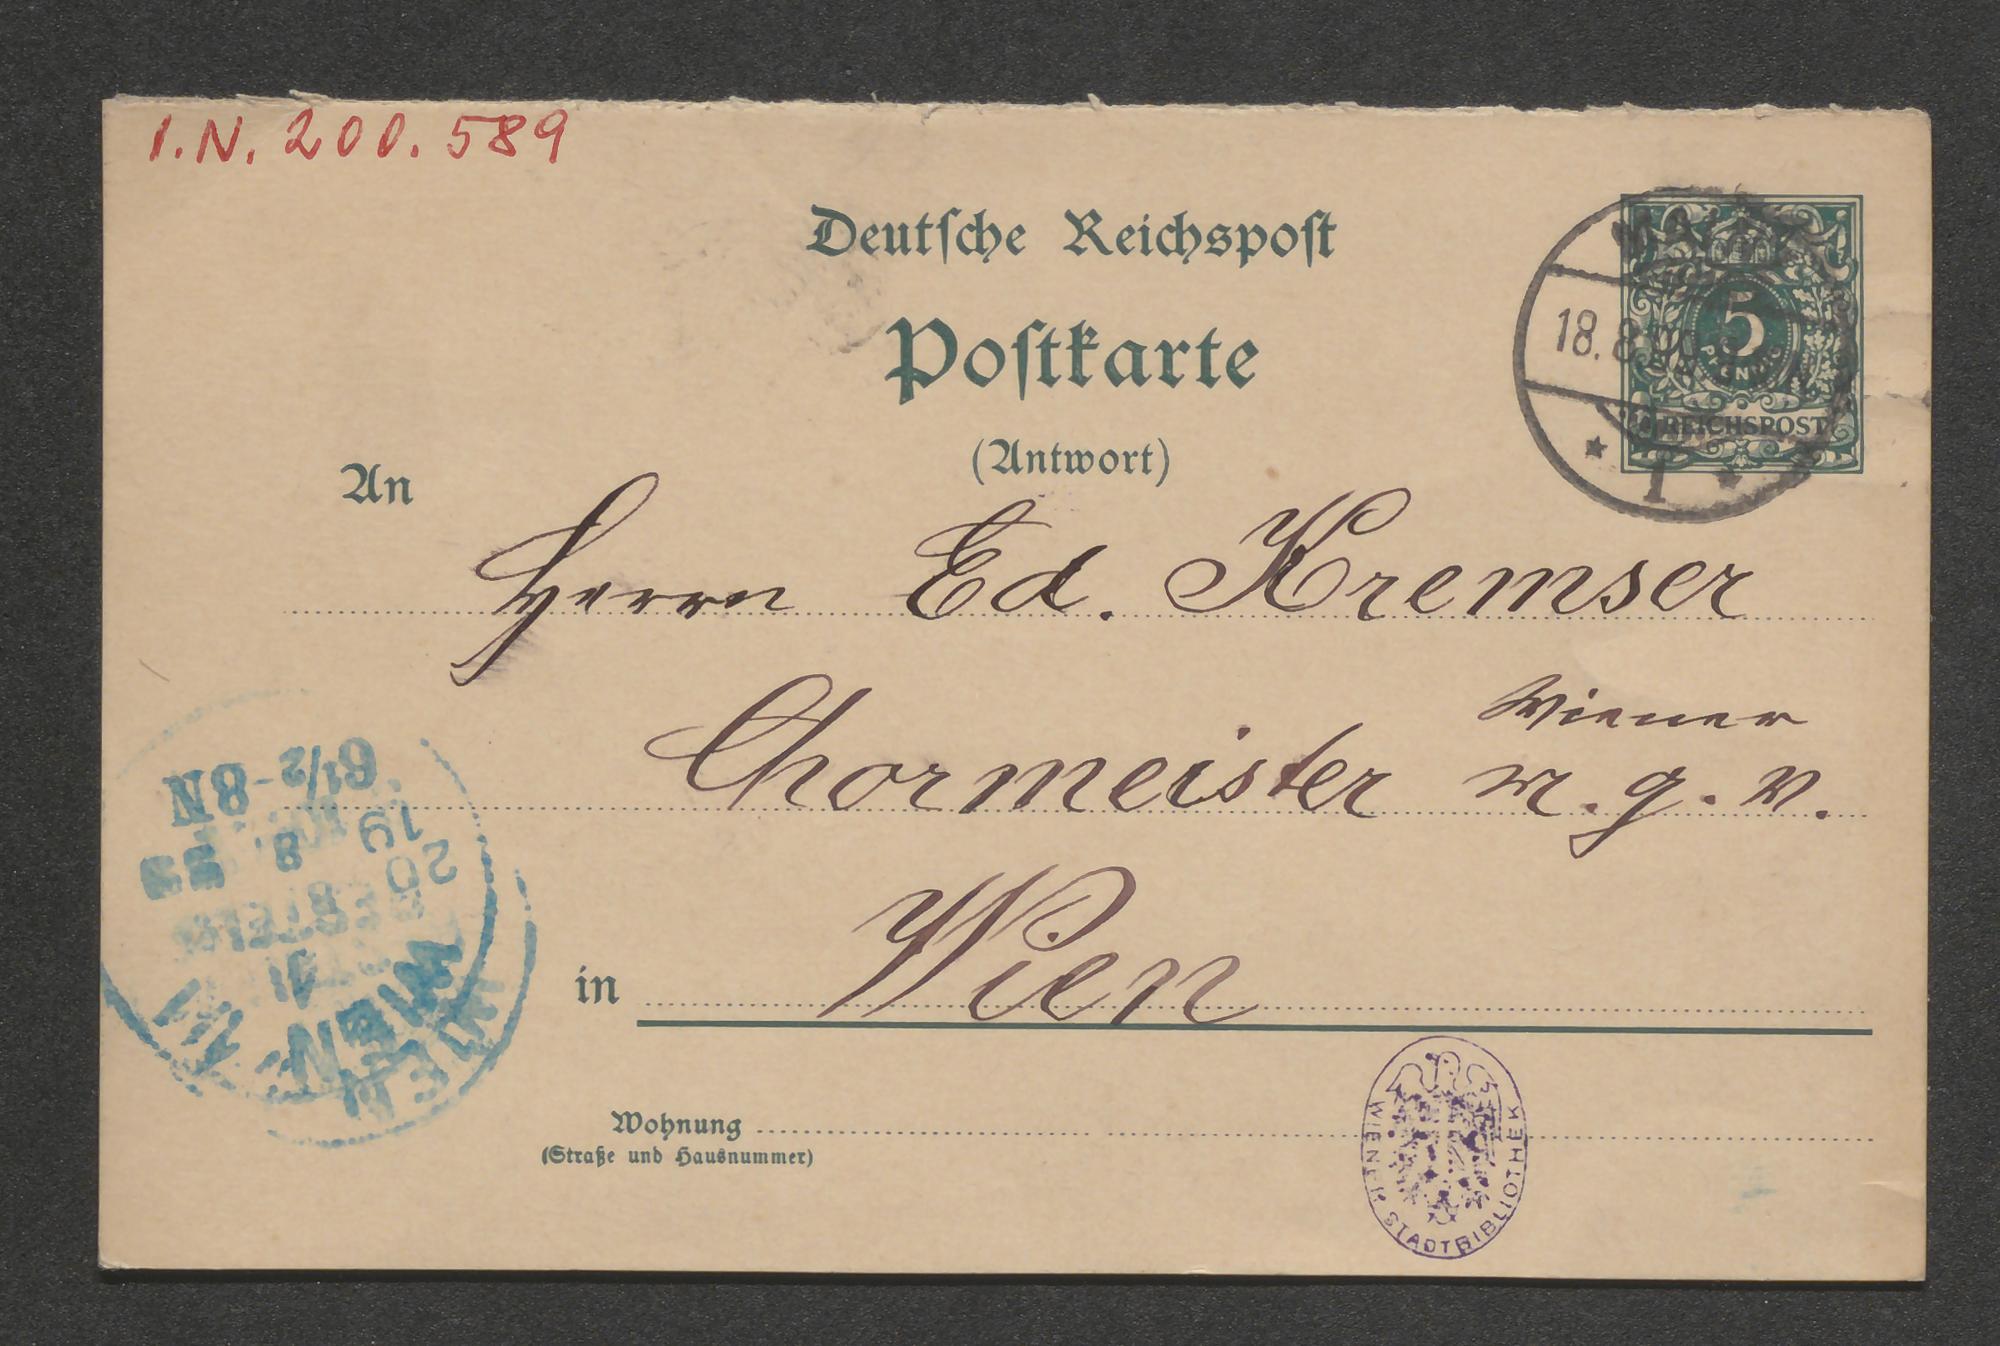 I.N. 200.589
Deutsche Reichspost
Postkarte
(Antwort)
5
REICHSPOST
18.8.
1
An
Herrn Ed. Kremser
Wiener
Chormeister M. G. V.
in Wien
Wohnung
(Straße und Hausnummer)
6½-8N
19 8
20 8
BESTELLT
WIEN
WIEN
WIENER STADTBIBLIOTHEK